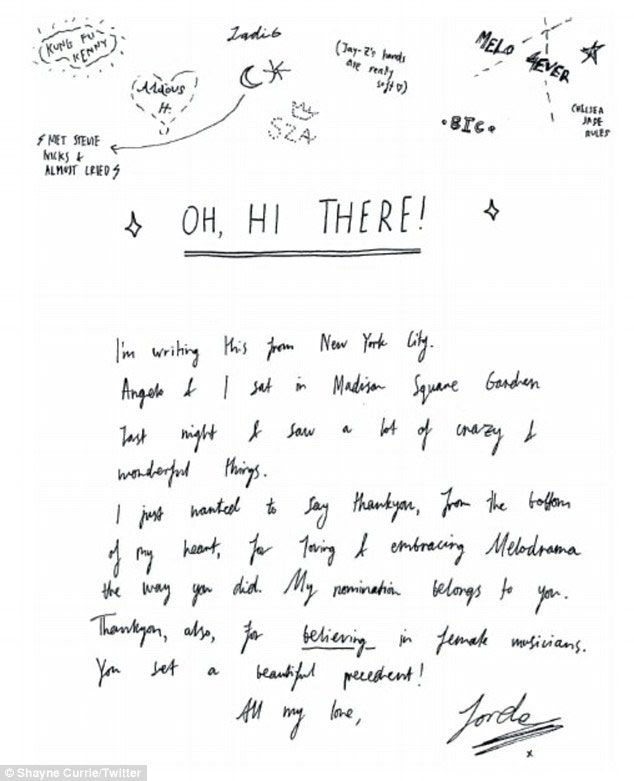 KUNG FU
KENNY
Zadie
(Jay-Z's hands
are really
soft♡)
MELO 4EVER
CHELSEA
JADE
RULES
Aldous
H.
SZA
•BIG•
⚡MET STEVIE
NICKS &
ALMOST CRIED⚡
OH, HI THERE!
I'm writing this from New York City.
Angelo & I sat in Madison Square Garden
last night & saw a lot of crazy &
wonderful things.
I just wanted to say thankyou, from the bottom
of my heart, for loving & embracing Melodrama
the way you did. My nomination belongs to you.
Thankyou, also, for believing in female musicians.
You set a beautiful precedent!
All my love,
Lorde
x
© Shayne Currie/Twitter